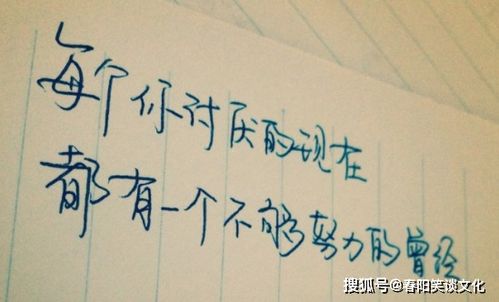 每个你讨厌的现在
都有一个不够努力的曾经
搜狐号@春阳笑谈文化